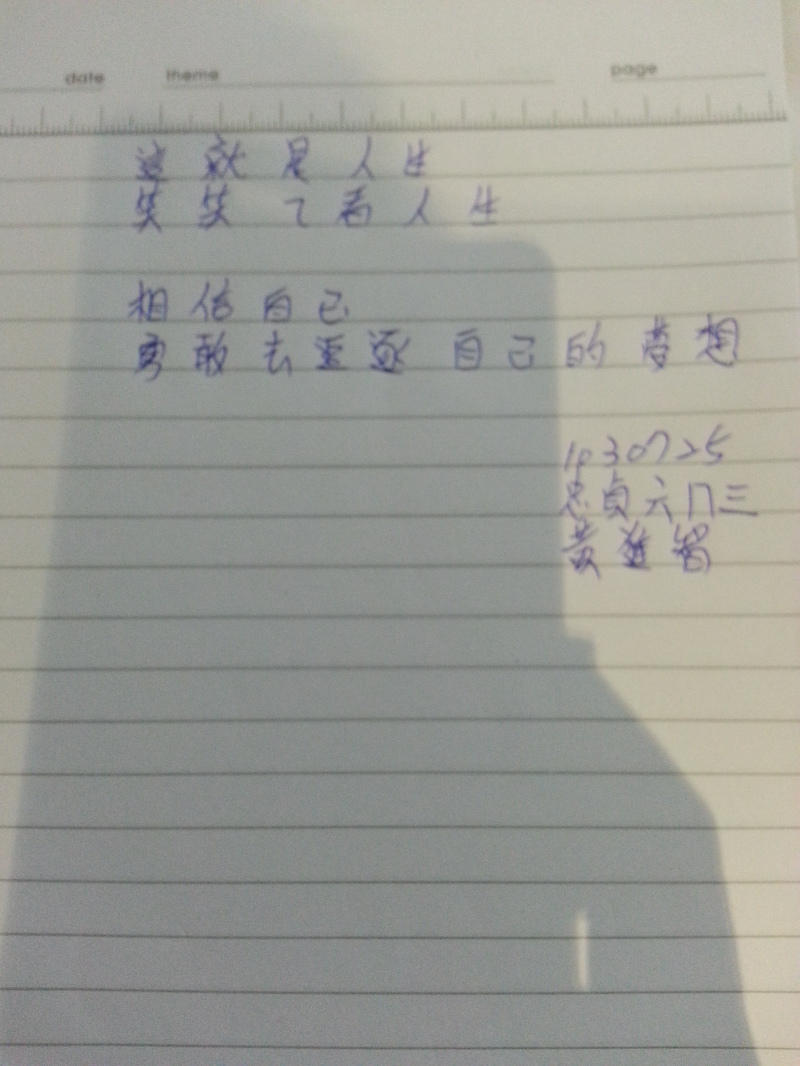 date theme page
這就是人生
笑笑看人生
相信自己
勇敢去追逐自己的夢想
1030725
忠貞六門三
黃